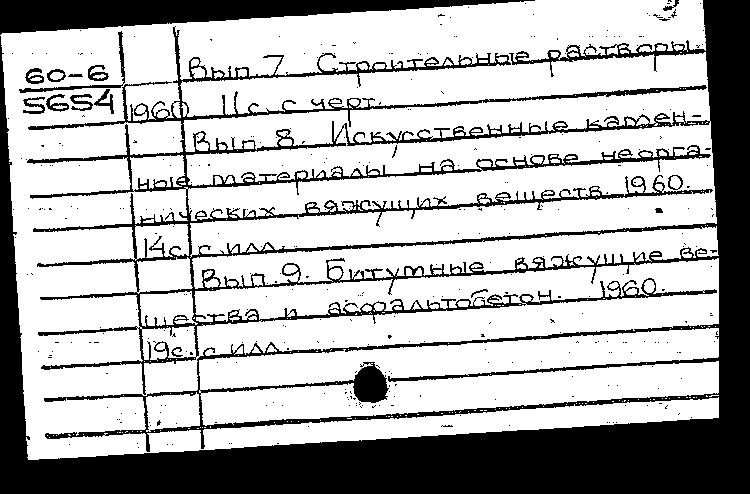 3
60-6
5654
Вып. 7. Строительные растворы.
1960. 11с. с черт.
Вып. 8. Искусственные камен-
ные материалы на основе неорга-
нических вяжущих веществ. 1960.
14с. с илл.
Вып. 9. Битумные вяжущие ве-
щества и асфальтобетон. 1960.
19с. с илл.